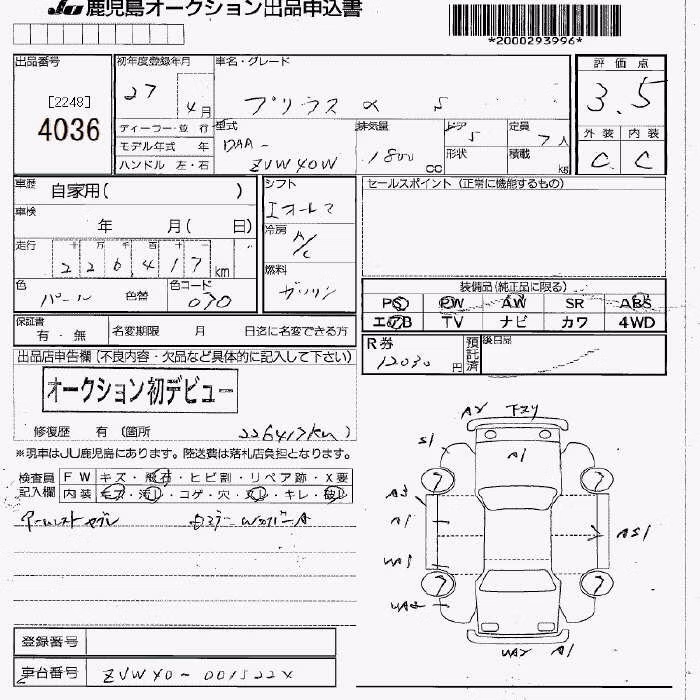 JU 鹿児島オークション出品申込書
*2000293996*
出品番号
[2248]
4036
初年度登録年月
27 4月
車名・グレード
プリウス α S
評価点
3.5
外装 内装
C C
ディーラー・並行
モデル年式 年
ハンドル 左・右
型式
DAA-
ZVW40W
排気量
1800 cc
ドア 5
形状
定員 7人
積載 kg
車歴 自家用( )
車検 年 月( 日)
走行 十 万 千 百 十
226,417 km
色 パール 色替
色コード 070
シフト
Iオートマ
冷房
A/C
燃料
ガソリン
セールスポイント (正常に機能するもの)
装備品(純正品に限る)
PS PW AW SR ABS
エアB TV ナビ カワ 4WD
保証書 有・無
名変期限 月 日迄に名変できる方
R券 12030円
預託済
後日品
出品店申告欄(不良内容・欠品など具体的に記入して下さい)
オークション初デビュー
修復歴 有 (箇所 226417km)
※現車はJU鹿児島にあります。陸送費は落札店負担となります。
検査員記入欄
FW キズ・飛石・ヒビ割・リペア跡・X要
内装 キズ・汚れ・コゲ・穴・スレ・キレ・破れ
A2 下スリ
S1
A1
A3
A1
7
7
7
7
UA2 A1
登録番号
車台番号 ZVW40-001522X